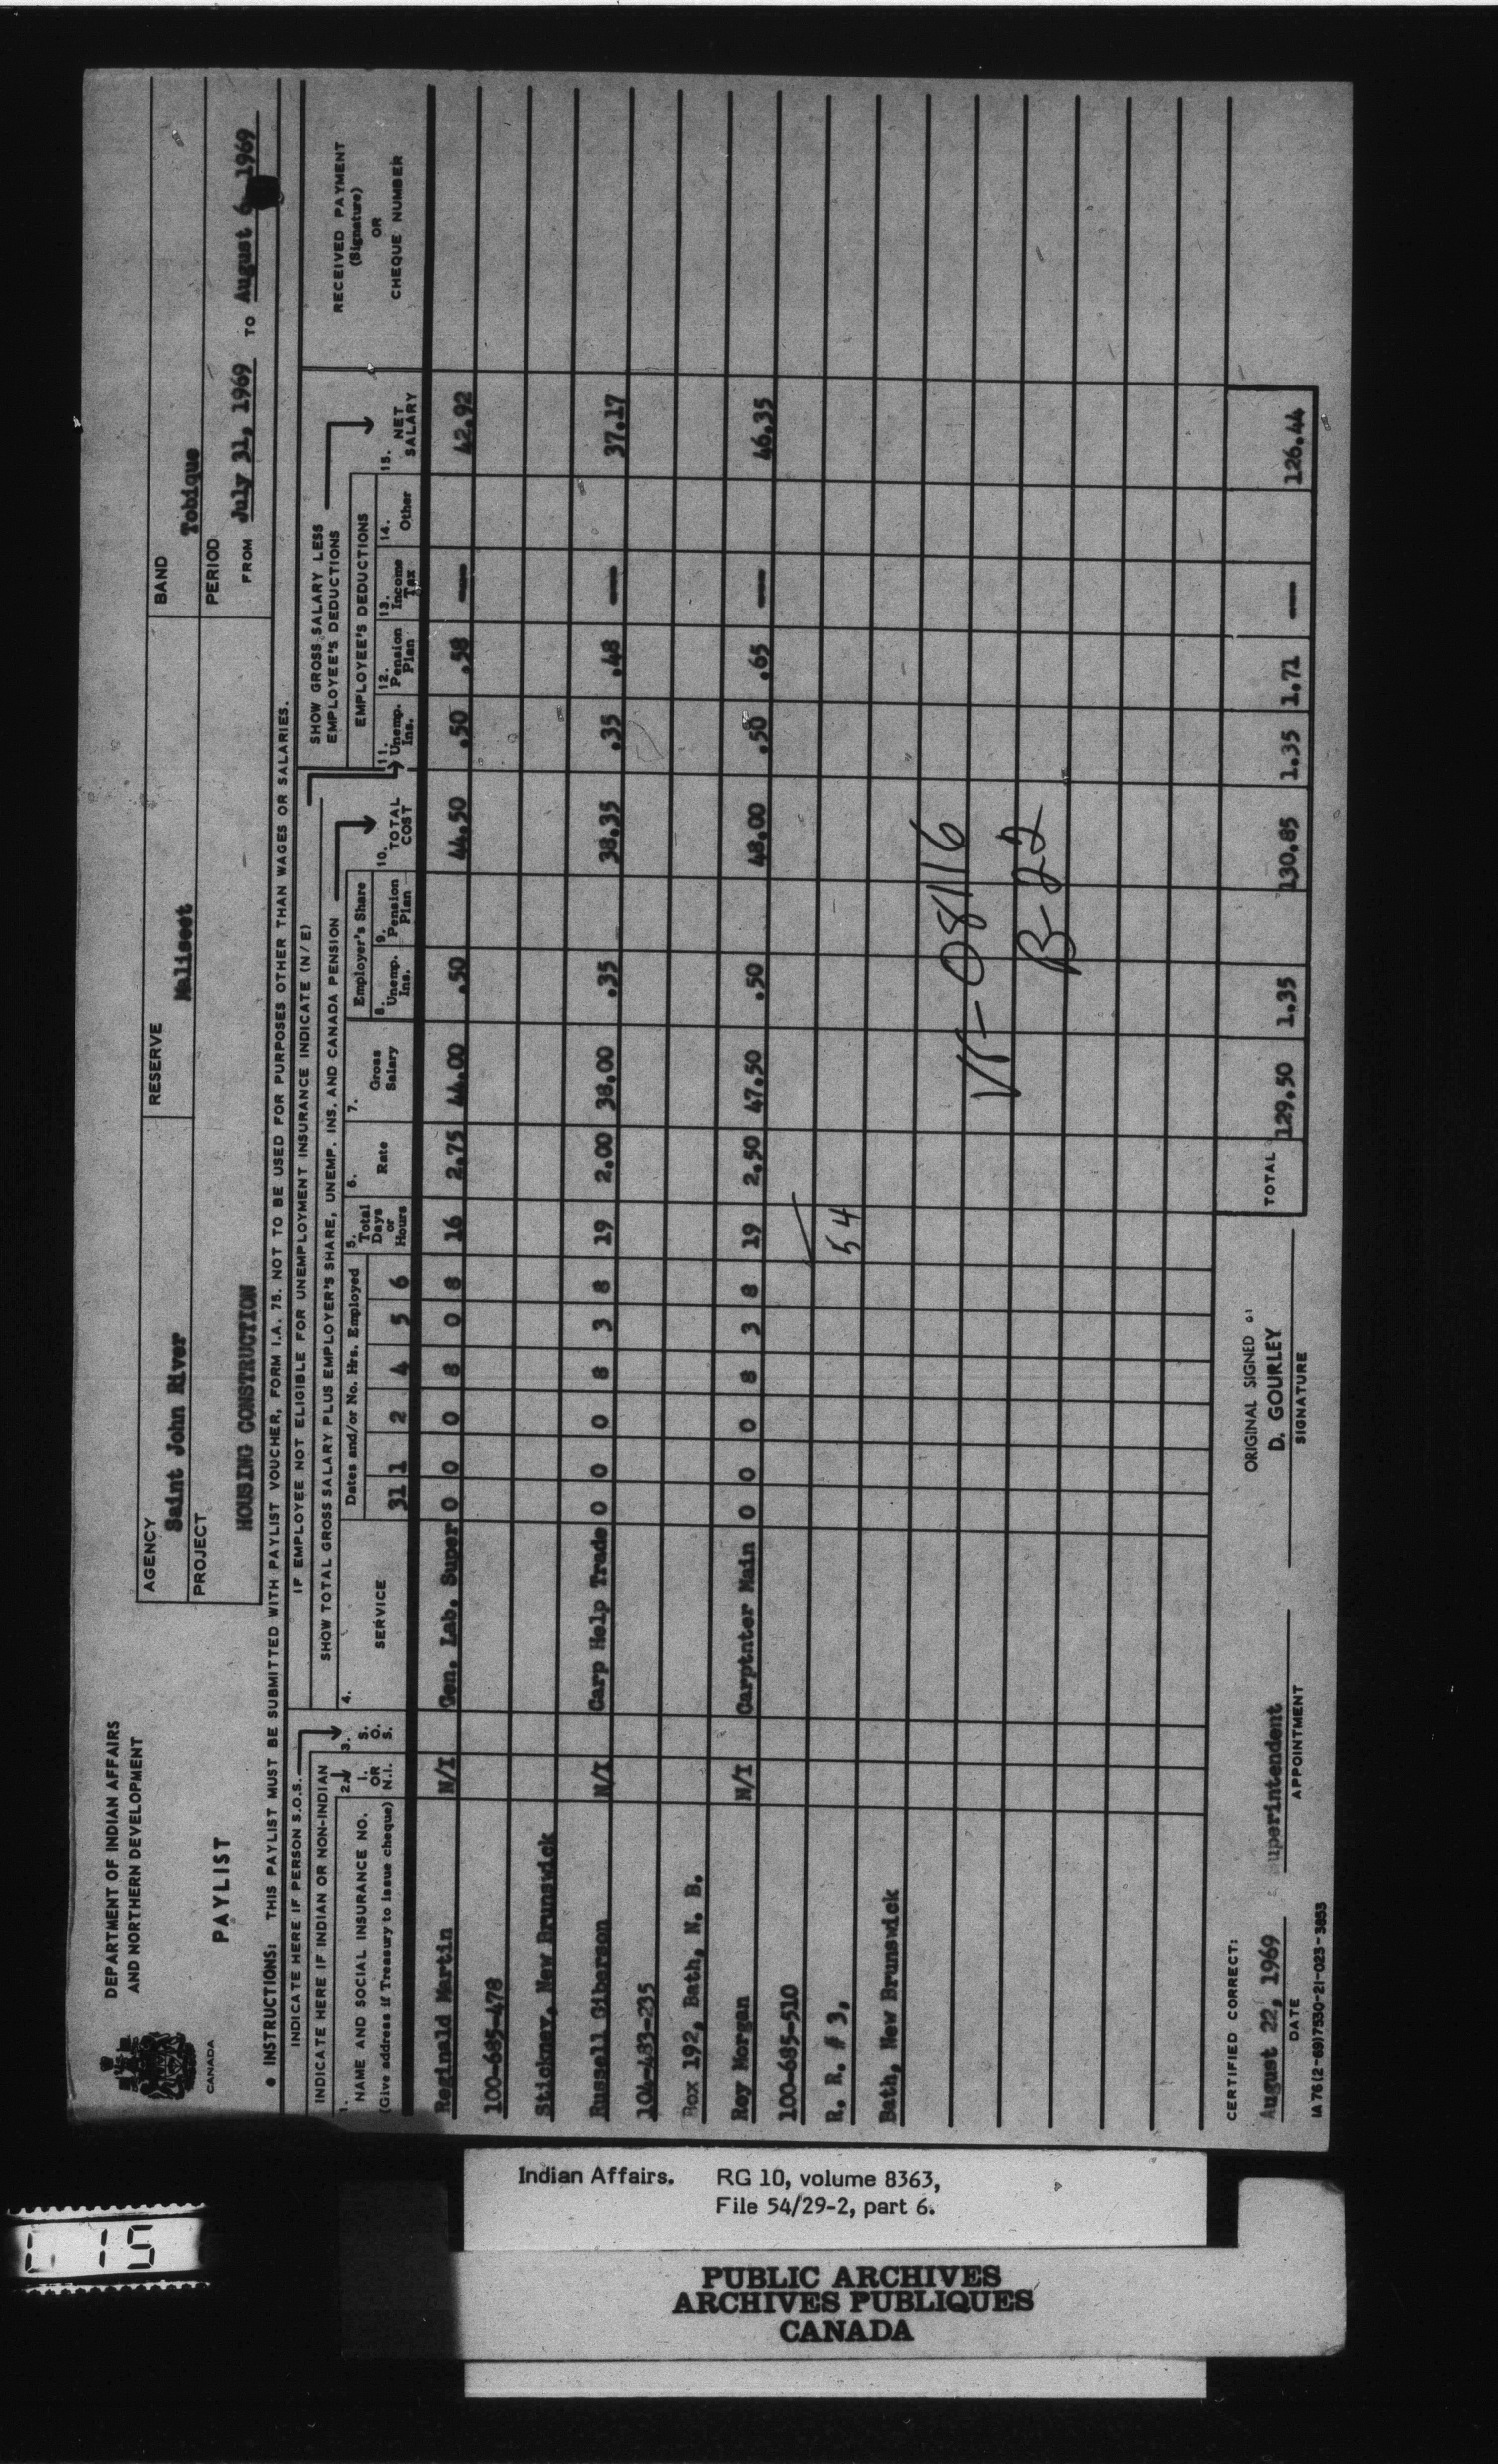 DEPARTMENT OF INDIAN AFFAIRS
AND NORTHERN DEVELOPMENT
CANADA
PAYLIST
AGENCY
Saint John River
RESERVE
Maliseet
BAND
Tobique
PROJECT
HOUSING CONSTRUCTION
PERIOD
FROM July 31, 1969 TO August 6 1969
● INSTRUCTIONS: THIS PAYLIST MUST BE SUBMITTED WITH PAYLIST VOUCHER, FORM I.A. 75. NOT TO BE USED FOR PURPOSES OTHER THAN WAGES OR SALARIES.
INDICATE HERE IF PERSON S.O.S.
IF EMPLOYEE NOT ELIGIBLE FOR UNEMPLOYMENT INSURANCE INDICATE (N/E)
INDICATE HERE IF INDIAN OR NON-INDIAN
SHOW TOTAL GROSS SALARY PLUS EMPLOYER'S SHARE, UNEMP. INS. AND CANADA PENSION
SHOW GROSS SALARY LESS
EMPLOYEE'S DEDUCTIONS
1. NAME AND SOCIAL INSURANCE NO.
(Give address if Treasury to issue cheque)
2. I. OR N.I.
3. S. O. S.
4. SERVICE
Dates and/or No. Hrs. Employed
31 1 2 4 5 6
5. Total Days or Hours
6. Rate
7. Gross Salary
Employer's Share
8. Unemp. Ins.
9. Pension Plan
10. TOTAL COST
EMPLOYEE'S DEDUCTIONS
11. Unemp. Ins.
12. Pension Plan
13. Income Tax
14. Other
15. NET SALARY
RECEIVED PAYMENT
(Signature)
OR
CHEQUE NUMBER
Reginald Martin N/I Gen. Lab. Super 0 0 0 8 0 8 16 2.75 44.00 .50 44.50 .50 .58 --- 42.92
100-685-478
Stickney, New Brunswick
Russell Giberson N/I Carp Help Trade 0 0 0 8 3 8 19 2.00 38.00 .35 38.35 .35 .48 --- 37.17
104-483-235
Box 192, Bath, N. B.
Roy Morgan N/I Carptnter Main 0 0 0 8 3 8 19 2.50 47.50 .50 48.00 .50 .65 --- 46.35
100-685-510
R. R. # 3, 54
Bath, New Brunswick
VF-08116
B-22
TOTAL 129.50 1.35 130.85 1.35 1.71 --- 126.44
CERTIFIED CORRECT:
August 22, 1969
DATE
uperintendent
APPOINTMENT
ORIGINAL SIGNED
D. GOURLEY
SIGNATURE
IA 76 (2-69) 7530-21-023-3853
Indian Affairs. RG 10, volume 8363,
File 54/29-2, part 6.
PUBLIC ARCHIVES
ARCHIVES PUBLIQUES
CANADA